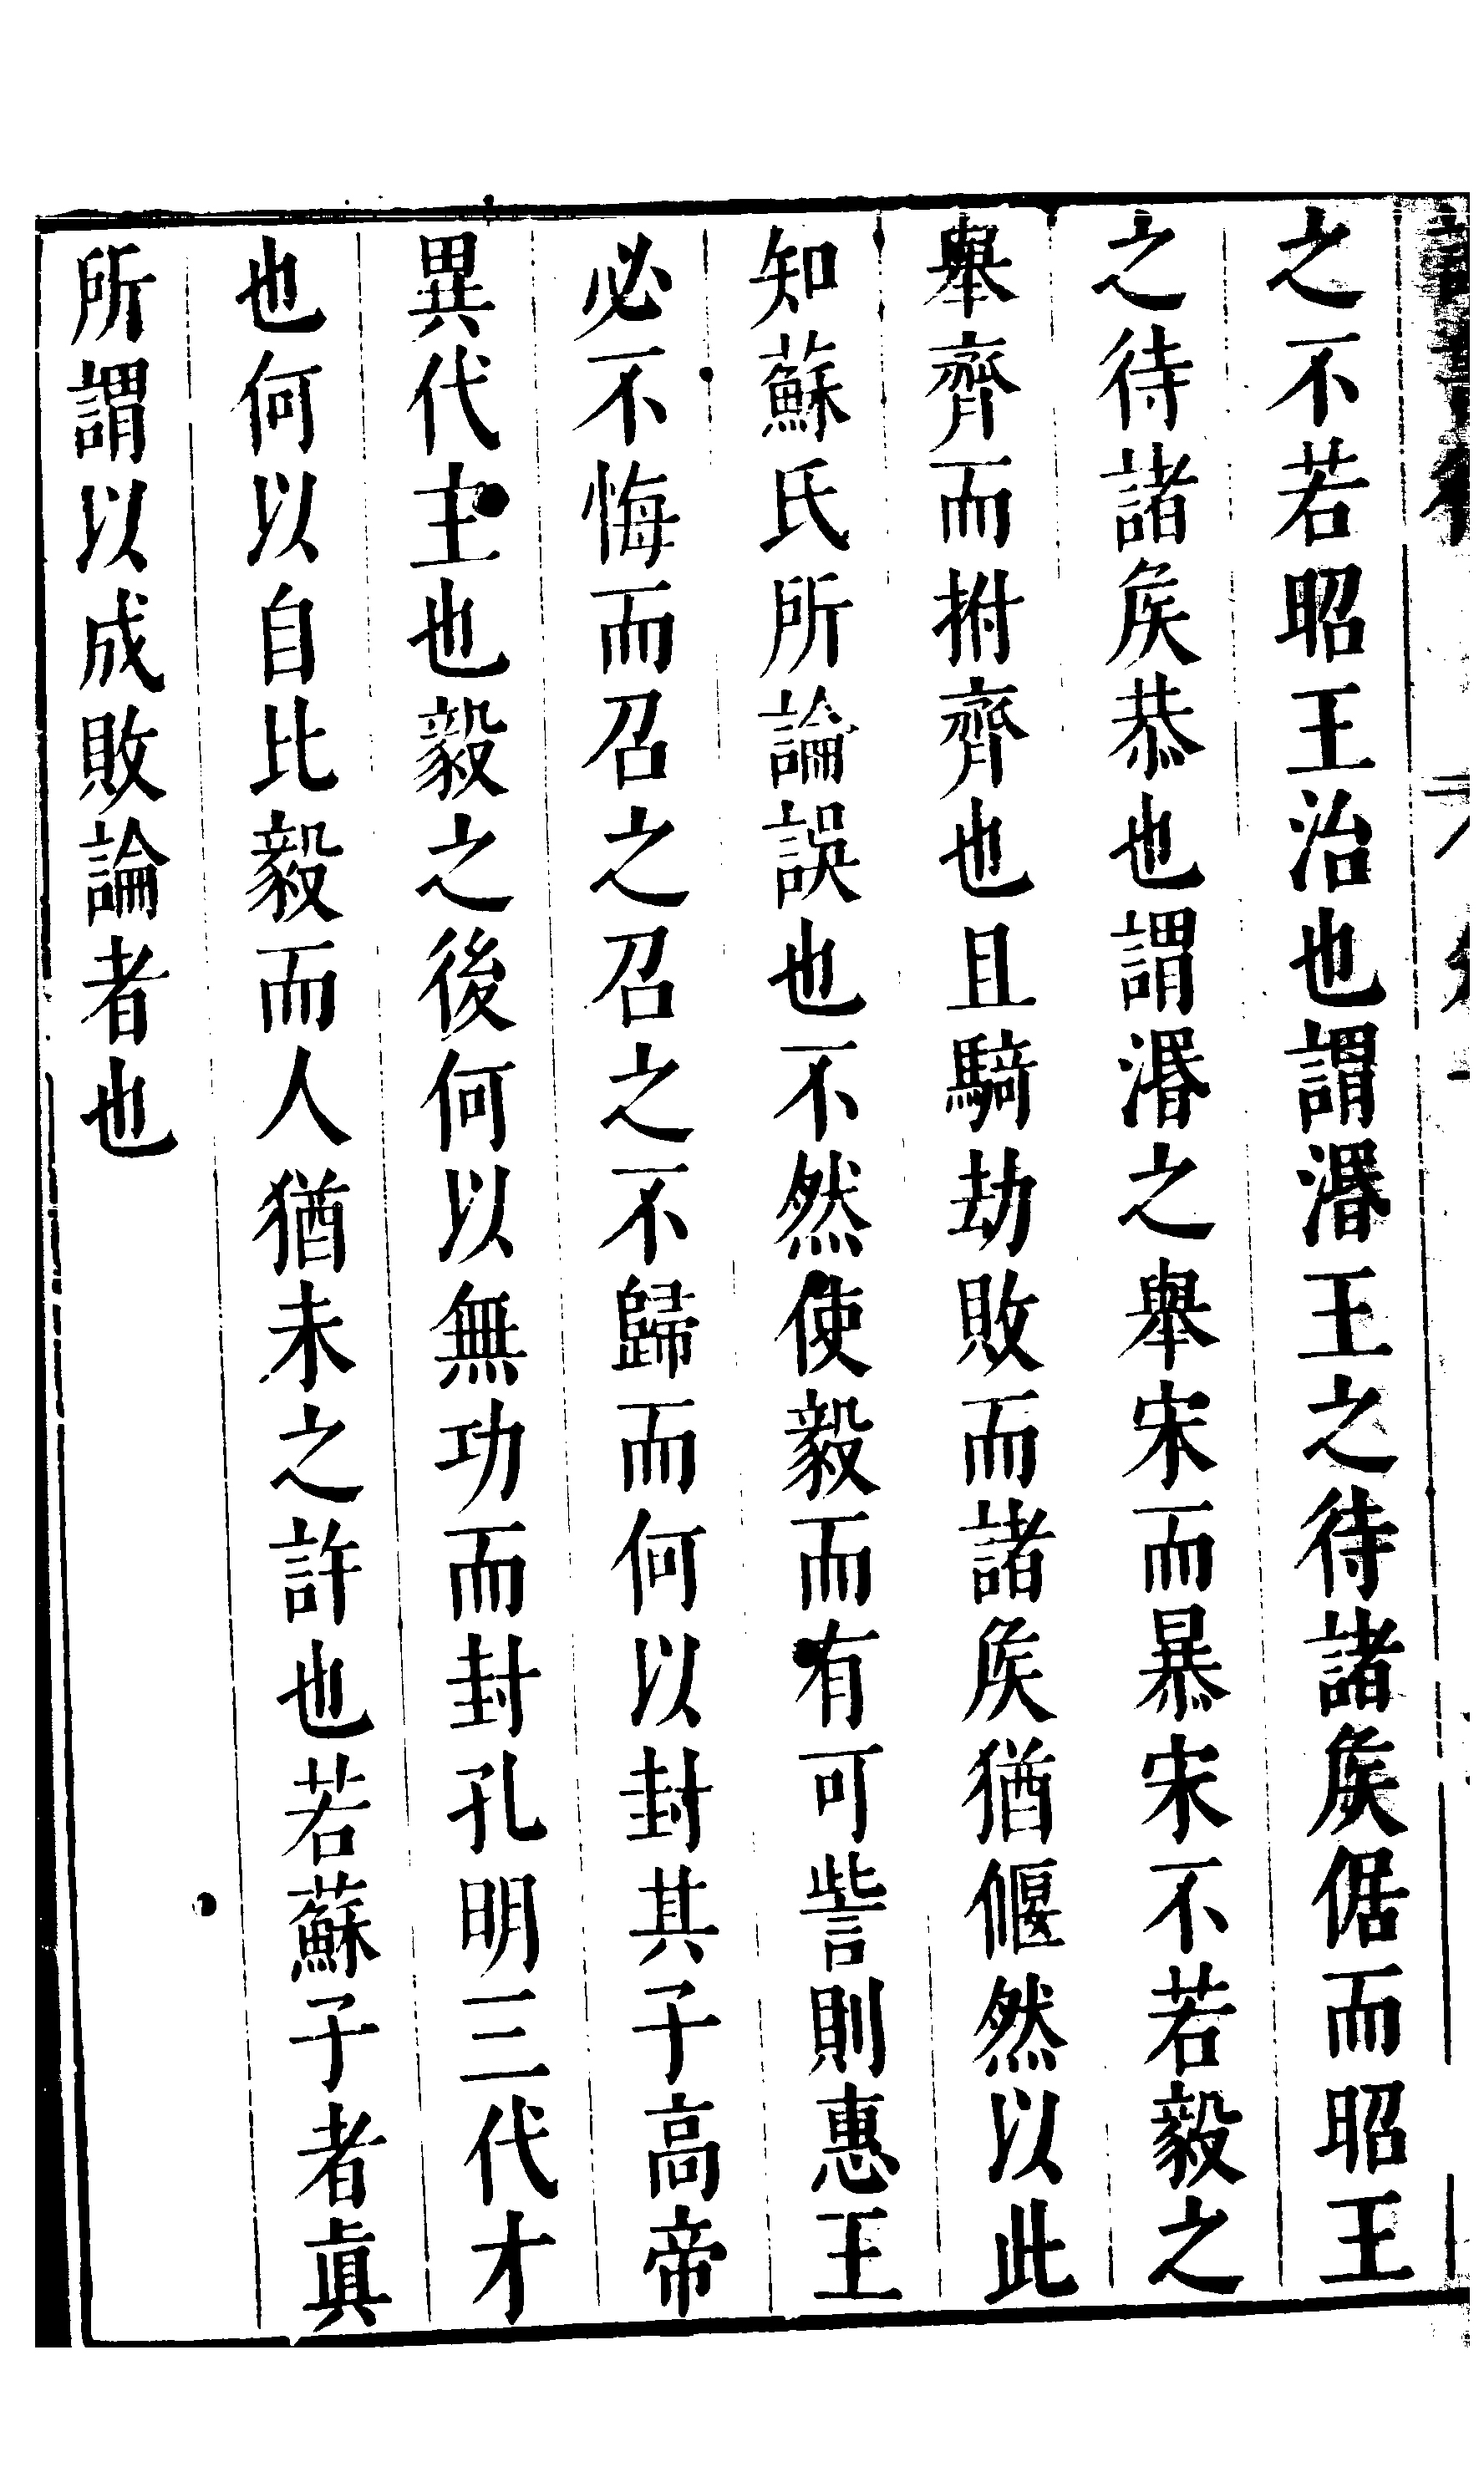 之不若昭王治也謂湣王之待諸矦倨而昭王
之待諸矦恭也謂湣之舉宋而暴宋不若毅之
舉齊而拊齊也且騎劫敗而諸矦猶偃然以此
知蘇氏所論誤也不然使毅而有可訾則惠王
必不悔而召之召之不歸而何以封其子高帝
異代主也毅之後何以無功而封孔明三代才
也何以自比毅而人猶未之許也若蘇子者眞
所謂以成敗論者也